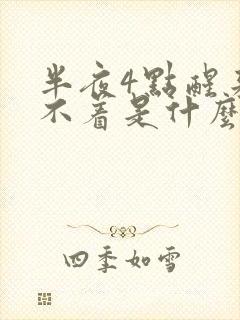 半夜4點醒來
不着是什麼
四季如雪